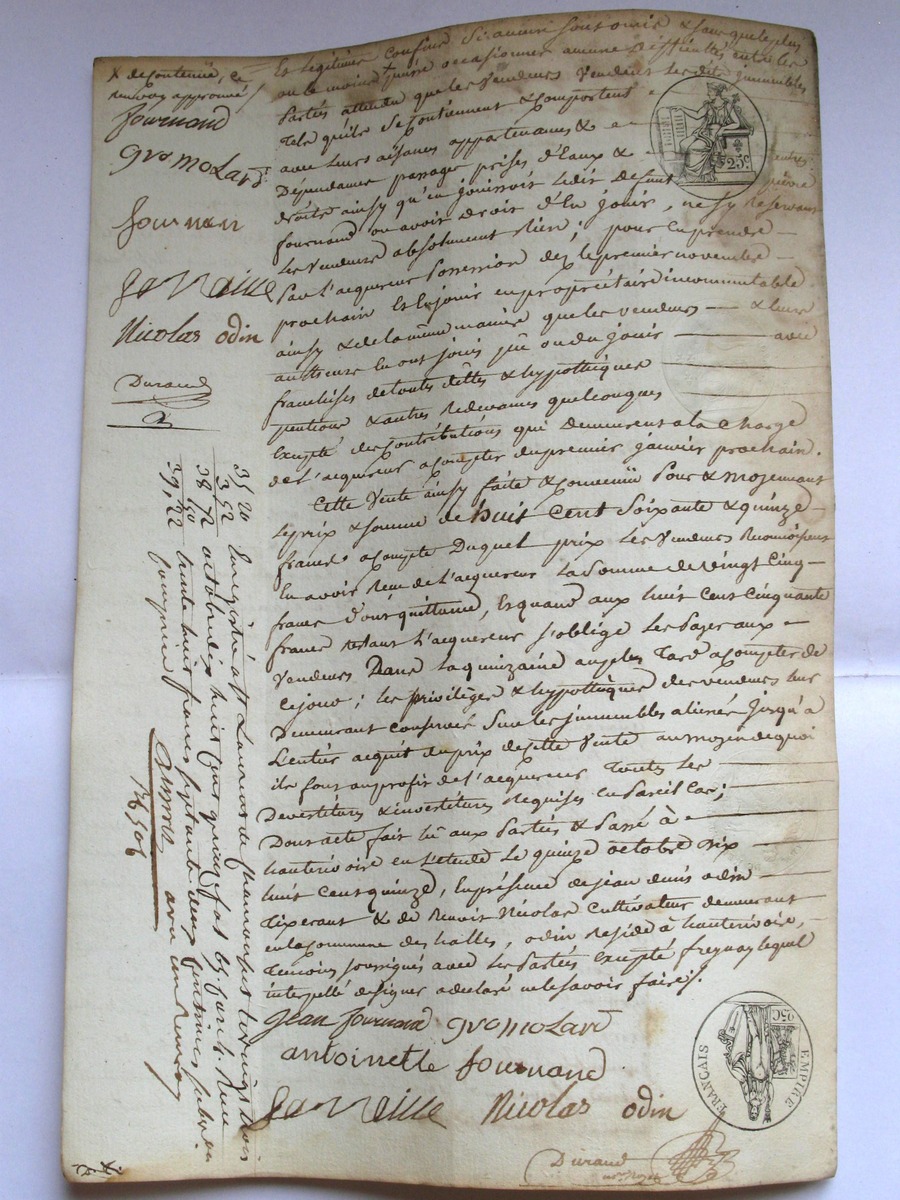 X de contenüe, ce
renvoy approuvé
fournand
gve molard
fournan
ja naime
Nicolas odin
Durand
Et legitime confins si aucuns sont omis & sans que le plus
ou le moins puisse occasionner aucune difficultés entre les
Parties attendu que les Vendeurs Vendent les dits immeubles
Tels qu'ils se contiennent & comportent
avec leurs aisances appartenances &
Dépendances passages prises d'Eaux &
droits ainsy qu'en jouissoit ledit defunt
fournand ou avoir droit d'En jouir, ne s'y Reservant
Les Vendeurs absolument Rien; pour En prendre
Par l'acquereur Possession dez le premier novembre
prochain Et En jouir en propriétaire incommutable
ainsy & de la même maniere que les vendeurs & leurs
autheurs En ont joüis pû ou dû jouir avec
franchises de toutes dettes & hypothèques
pentions & autres Redevances quelconques
Excepté des contributions qui demeurent a la Charge
de l'acquereur a compter du premier janvier prochain.
Cette Vente ainsy faite & convenüe Pour & moyennant
Le prix & somme de huit Cent Soixante & quinze
francs a compte Duquel prix les Vendeurs Reconnoissent
En avoir Reçu de l'acquereur La Somme de vingt Cinq
francs dont quittance, Et quand aux huit Cent Cinquante
francs restant L'acquereur s'oblige Les Payer aux
Vendeurs Dans La quinzaine au plus Tard a compter de
Ce jour; les privilèges & hypothèques des vendeurs leur
Demeurant conservés Sur les immeubles alienés jusqu'à
L'entier acquit du prix de cette Vente au moyen de quoi
ils font au profit de l'acquereur Toutes les
Devestitures & investitures Requises en Pareil Cas;
Dont acte fait lü aux Parties & Passé à
hauterivoire en L'etude Le quinze octobre dix
huit Cent quinze, En présence de jean denis odin
Tixerant & de Benoit Nicolas Cultivateur demeurant
en la commune des halles, odin Reside à hauterivoire,
Temoins soussignés avec les Parties excepté freynay lequel
interpellé de signer a declaré ne le savoir faire
Jean fournand gve molard
antoinette fournand
ja naime Nicolas odin
Durand
25C
EMPIRE FRANÇAIS
25C
35 20
3 52
38 72
50
39,22
Enregistré a St Laurent de Chamousset le vingt trois
octobre dix huit cent quinze
Reçu
trente huit francs septante deux centimes